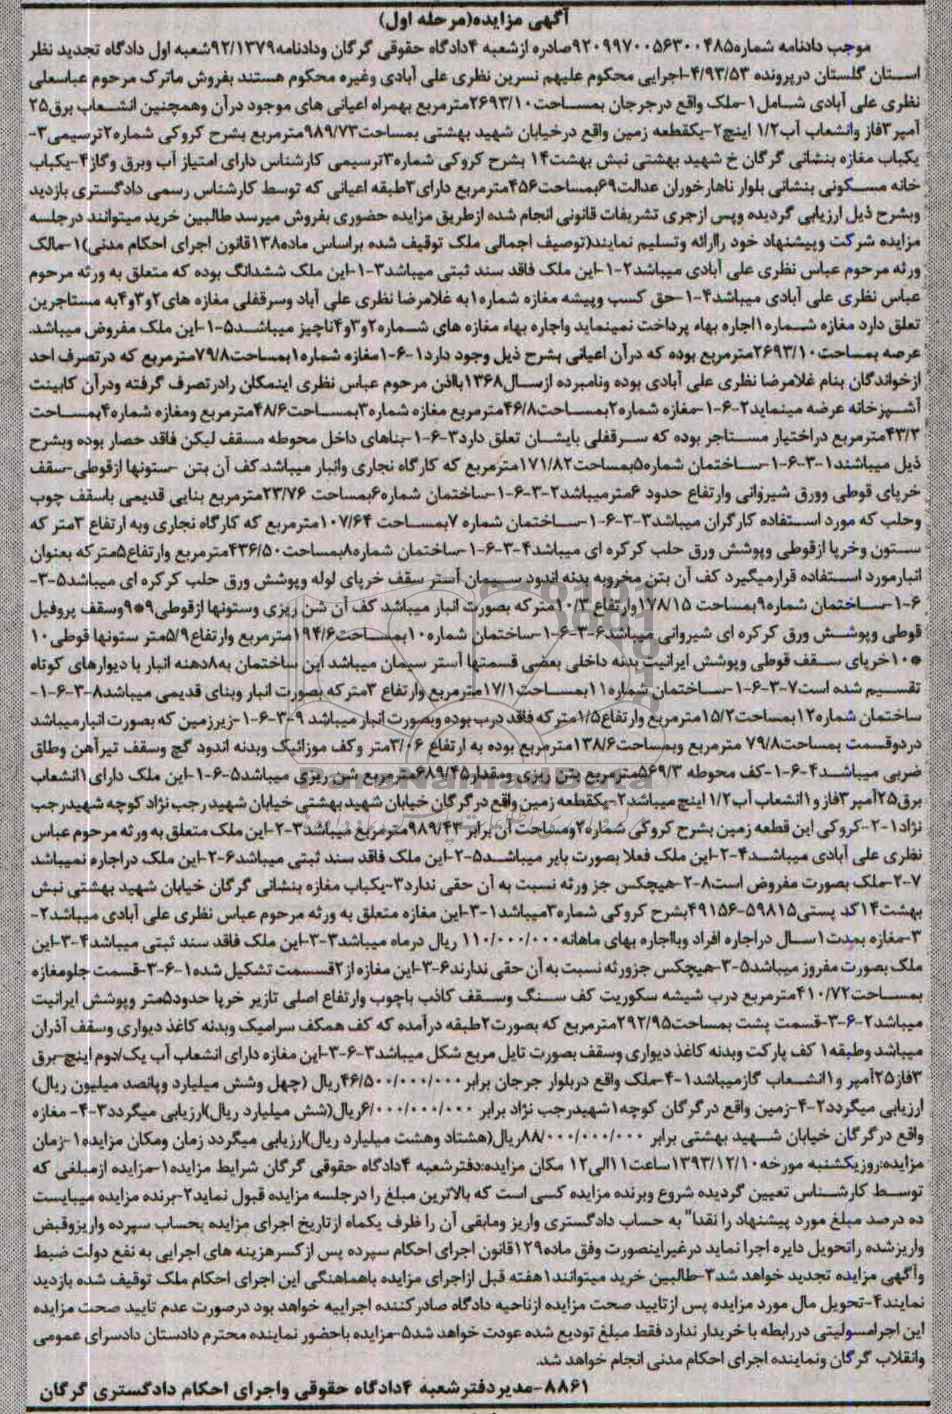 آگهی مزایده(مرحله اول)
موجب دادنامه شماره۹۲۰۹۹۷۰۰۵۶۳۰۰۴۸۵صادره ازشعبه ۴دادگاه حقوقی گرگان ودادنامه۹۲/۱۳۷۹شعبه اول دادگاه تجدید نظر
استان گلستان درپرونده ۴/۹۳/۵۳-اجرایی محکوم علیهم نسرین نظری علی آبادی وغیره محکوم هستند بفروش ماترک مرحوم عباسعلی
نظری علی آبادی شامل۱-ملک واقع درجرجان بمساحت۲۶۹۳/۱۰مترمربع بهمراه اعیانی های موجود درآن وهمچنین انشعاب برق۲۵
آمپر۳فاز وانشعاب آب۱/۲ اینچ۲-یکقطعه زمین واقع درخیابان شهید بهشتی بمساحت۹۸۹/۷۳مترمربع بشرح کروکی شماره۲ترسیمی۳-
یکباب مغازه بنشانی گرگان خ شهید بهشتی نبش بهشت۱۴ بشرح کروکی شماره۳ترسیمی کارشناس دارای امتیاز آب وبرق وگاز۴-یکباب
خانه مسکونی بنشانی بلوار ناهارخوران عدالت۶۹بمساحت۴۵۶مترمربع دارای۳طبقه اعیانی که توسط کارشناس رسمی دادگستری بازدید
وبشرح ذیل ارزیابی گردیده وپس ازجری تشریفات قانونی انجام شده ازطریق مزایده حضوری بفروش میرسد طالبین خرید میتوانند درجلسه
مزایده شرکت وپیشنهاد خود راارائه وتسلیم نمایند(توصیف اجمالی ملک توقیف شده براساس ماده۱۳۸قانون اجرای احکام مدنی)۱-مالک
ورثه مرحوم عباس نظری علی آبادی میباشد۲-۱-این ملک فاقد سند ثبتی میباشد۳-۱-این ملک ششدانگ بوده که متعلق به ورثه مرحوم
عباس نظری علی آبادی میباشد۴-۱-حق کسب وپیشه مغازه شماره۱به غلامرضا نظری علی آباد وسرقفلی مغازه های۲و۳و۴به مستاجرین
تعلق دارد مغازه شماره۱اجاره بهاء پرداخت نمینماید واجاره بهاء مغازه های شماره۲و۳و۴ناچیز میباشد۵-۱-این ملک مفروض میباشد.
عرصه بمساحت۲۶۹۳/۱۰مترمربع بوده که درآن اعیانی بشرح ذیل وجود دارد۱-۶-۱مغازه شماره۱بمساحت۷۹/۸مترمربع که درتصرف احد
ازخواندگان بنام غلامرضا نظری علی آبادی بوده ونامبرده ازسال۱۳۶۸بااذن مرحوم عباس نظری اینمکان رادرتصرف گرفته ودرآن کابینت
آشپزخانه عرضه مینماید۲-۶-۱-مغازه شماره۲بمساحت۴۶/۸مترمربع مغازه شماره۳بمساحت۴۸/۶مترمربع ومغازه شماره۴بمساحت
۴۳/۳مترمربع دراختیار مستاجر بوده که سرقفلی بایشان تعلق دارد۳-۶-۱-بناهای داخل محوطه مسقف لیکن فاقد حصار بوده وبشرح
ذیل میباشند۱-۳-۶-۱-ساختمان شماره۵بمساحت۱۷۱/۸۲مترمربع که کارگاه نجاری وانبار میباشد.کف آن بتن -ستونها ازقوطی-سقف
خرپای قوطی وورق شیروانی وارتفاع حدود ۶مترمیباشد۲-۳-۶-۱-ساختمان شماره۶بمساحت ۲۳/۷۶مترمربع بنایی قدیمی باسقف چوب
وحلب که مورد استفاده کارگران میباشد۳-۳-۶-۱-ساختمان شماره ۷بمساحت ۱۰۷/۶۴مترمربع که کارگاه نجاری وبه ارتفاع ۳متر که
ستون وخرپا ازقوطی وپوشش ورق حلب کرکره ای میباشد۴-۳-۶-۱-ساختمان شماره۸بمساحت۴۳۶/۵۰مترمربع وارتفاع۵مترکه بعنوان
انبارمورد استفاده قرارمیگیرد کف آن بتن مخروبه بدنه اندود سیمان آستر سقف خرپای لوله وپوشش ورق حلب کرکره ای میباشد۵-۳-
۶-۱-ساختمان شماره۹بمساحت ۱۷۸/۱۵وارتفاع ۱۰/۳مترکه بصورت انبار میباشد کف آن شن ریزی وستونها ازقوطی۹*۹وسقف پروفیل
قوطی وپوشش ورق کرکره ای شیروانی میباشد۶-۳-۶-۱-ساختمان شماره۱۰بمساحت۱۹۴/۶مترمربع وارتفاع۵/۹متر ستونها قوطی۱۰
*۱۰خرپای سقف قوطی وپوشش ایرانیت بدنه داخلی بعضی قسمتها آستر سیمان میباشد این ساختمان به۸دهنه انبار با دیوارهای کوتاه
تقسیم شده است۷-۳-۶-۱-ساختمان شماره۱۱بمساحت۱۷/۱مترمربع وارتفاع ۳متر که بصورت انبار وبنای قدیمی میباشد۸-۳-۶-۱-
ساختمان شماره۱۲بمساحت۱۵/۲مترمربع وارتفاع۱/۵مترکه فاقد درب بوده وبصورت انبار میباشد ۹-۳-۶-۱-زیرزمین که بصورت انبارمیباشد
دردوقسمت بمساحت۷۹/۸ مترمربع وبمساحت۱۳۸/۶مترمربع بوده به ارتفاع ۳/۰۶متر وکف موزائیک وبدنه اندود گچ وسقف تیرآهن وطاق
ضربی میباشد۴-۶-۱-کف محوطه ۵۶۹/۳مترمربع بتن ریزی ومقدار۶۸۹/۴۵مترمربع شن ریزی میباشد۵-۶-۱-این ملک دارای۱انشعاب
برق۲۵آمپر۳فاز و۱انشعاب آب۱/۲ اینچ میباشد۲-یکقطعه زمین واقع درگرگان خیابان شهید بهشتی خیابان شهید رجب نژاد کوچه شهیدرجب
نژاد۱-۲-کروکی این قطعه زمین بشرح کروکی شماره۲ومساحت آن برابر ۹۸۹/۴۳مترمربع میباشد۳-۲-این ملک متعلق به ورثه مرحوم عباس
نظری علی آبادی میباشد۴-۲-این ملک فعلا بصورت بایر میباشد۵-۲-این ملک فاقد سند ثبتی میباشد۶-۲-این ملک دراجاره نمیباشد
۷-۲-ملک بصورت مفروض است۸-۲-هیچکس جز ورثه نسبت به آن حقی ندارد۳-یکباب مغازه بنشانی گرگان خیابان شهید بهشتی نبش
بهشت۱۴کد پستی۵۹۸۱۵-۴۹۱۵۶بشرح کروکی شماره۳میباشد۱-۳-این مغازه متعلق به ورثه مرحوم عباس نظری علی آبادی میباشد۲-
۳-مغازه بمدت۱سال دراجاره افراد وبااجاره بهای ماهانه۱۱۰/۰۰۰/۰۰۰ ریال درماه میباشد۳-۳-این ملک فاقد سند ثبتی میباشد۴-۳-این
ملک بصورت مفروز میباشد۵-۳-هیچکس جزورثه نسبت به آن حقی ندارند۶-۳-این مغازه از۲قسمت تشکیل شده۱-۶-۳-قسمت جلومغازه
بمساحت۴۱۰/۷۲مترمربع درب شیشه سکوریت کف سنگ وسقف کاذب باچوب وارتفاع اصلی تازیر خرپا حدود۵متر وپوشش ایرانیت
میباشد۲-۶-۳-قسمت پشت بمساحت۲۹۲/۹۵مترمربع که بصورت۲طبقه درآمده که کف همکف سرامیک وبدنه کاغذ دیواری وسقف آذران
میباشد وطبقه۱ کف پارکت وبدنه کاغذ دیواری وسقف بصورت تایل مربع شکل میباشد۳-۶-۳-این مغازه دارای انشعاب آب یک/دوم اینچ-برق
۳فاز۲۵آمپر و۱انشعاب گازمیباشد۱-۴-ملک واقع دربلوار جرجان برابر۴۶/۵۰۰/۰۰۰/۰۰۰ریال (چهل وشش میلیارد وپانصد میلیون ریال)
ارزیابی میگردد۲-۴-زمین واقع درگرگان کوچه۱شهیدرجب نژاد برابر ۶/۰۰۰/۰۰۰/۰۰۰ریال(شش میلیارد ریال)ارزیابی میگردد۳-۴- مغازه
واقع درگرگان خیابان شهید بهشتی برابر ۸۸/۰۰۰/۰۰۰/۰۰۰ریال(هشتاد وهشت میلیارد ریال)ارزیابی میگردد زمان ومکان مزایده۱-زمان
مزایده:روزیکشنبه مورخه۱۳۹۳/۱۲/۱۰ساعت۱۱الی۱۲ مکان مزایده:دفترشعبه ۴دادگاه حقوقی گرگان شرایط مزایده۱-مزایده ازمبلغی که
توسط کارشناس تعیین گردیده شروع وبرنده مزایده کسی است که بالاترین مبلغ را درجلسه مزایده قبول نماید۲-برنده مزایده میبایست
ده درصد مبلغ مورد پیشنهاد را نقدا" به حساب دادگستری واریز ومابقی آن را ظرف یکماه ازتاریخ اجرای مزایده بحساب سپرده واریزوقبض
واریزشده راتحویل دایره اجرا نماید درغیراینصورت وفق ماده۱۲۹قانون اجرای احکام سپرده پس ازکسرهزینه های اجرایی به نفع دولت ضبط
وآگهی مزایده تجدید خواهد شد۳-طالبین خرید میتوانند۱هفته قبل ازاجرای مزایده باهماهنگی این اجرای احکام ملک توقیف شده بازدید
نمایند۴-تحویل مال مورد مزایده پس ازتایید صحت مزایده ازناحیه دادگاه صادرکننده اجراییه خواهد بود درصورت عدم تایید صحت مزایده
این اجرامسولیتی دررابطه با خریدار ندارد فقط مبلغ تودیع شده عودت خواهد شد۵-مزایده باحضور نماینده محترم دادستان دادسرای عمومی
وانقلاب گرگان ونماینده اجرای احکام مدنی انجام خواهد شد.
۸۸۶۱-مدیردفترشعبه ۴دادگاه حقوقی واجرای احکام دادگستری گرگان